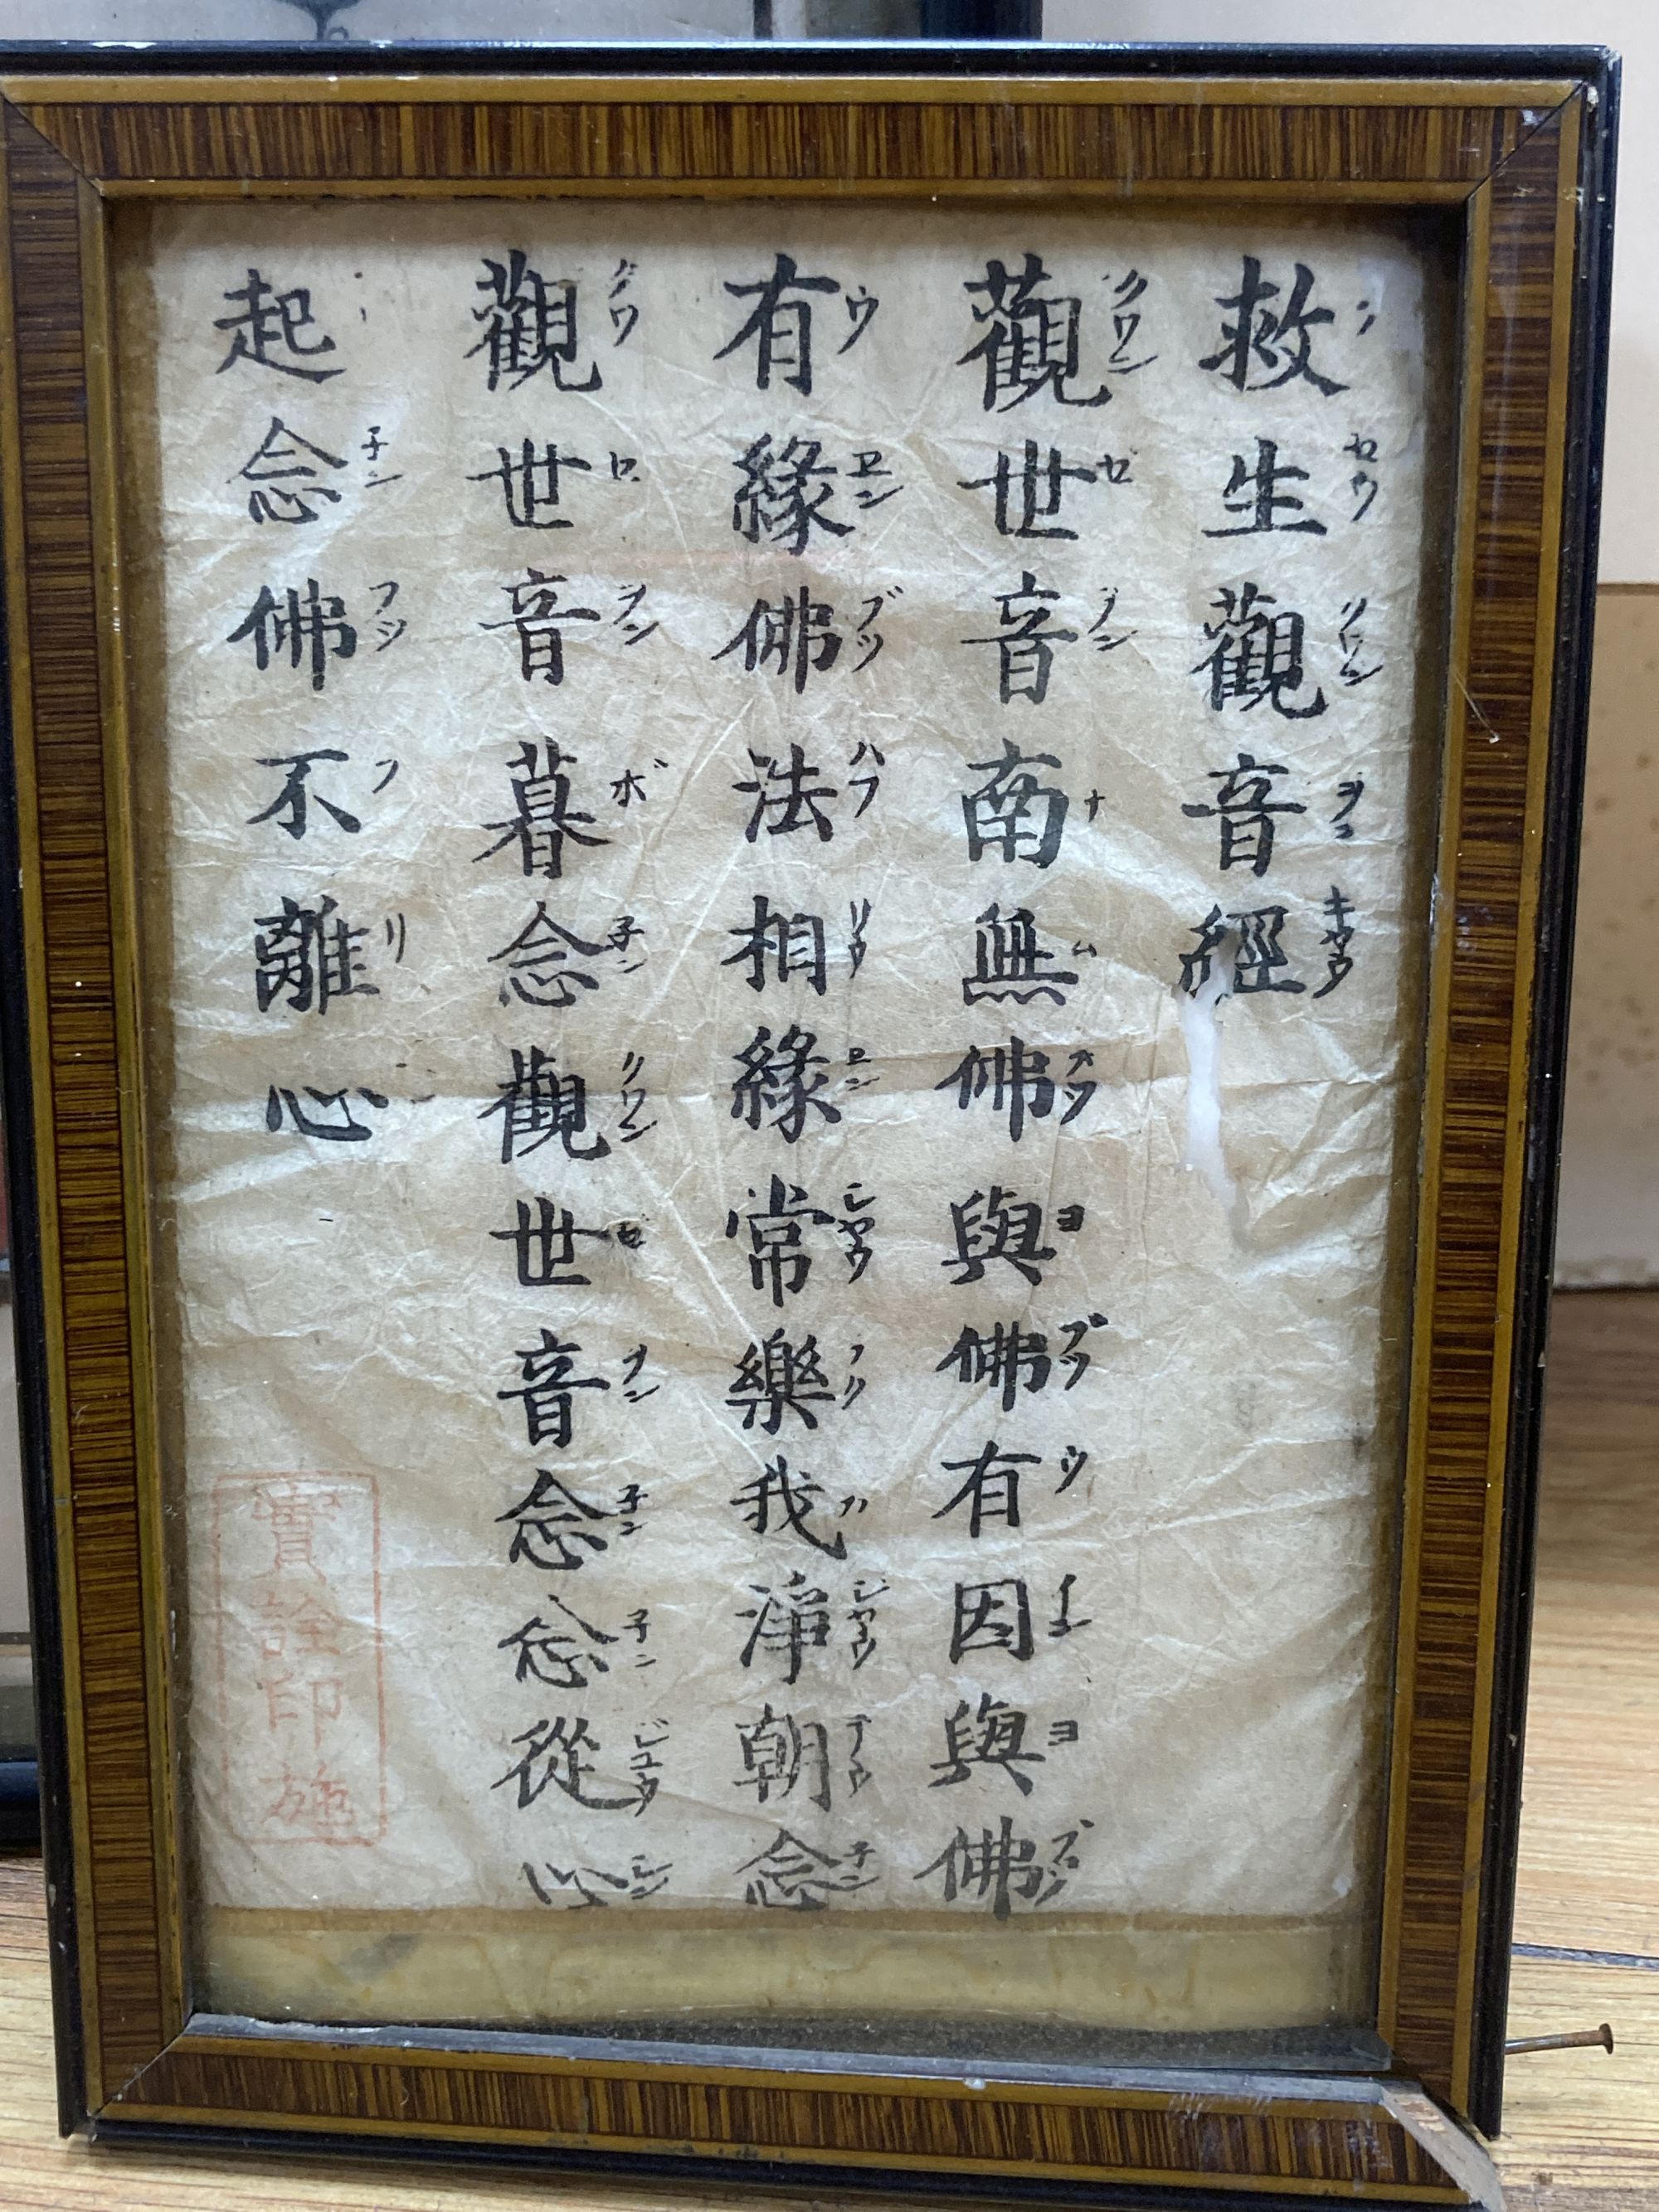 救生觀音經
觀世音南無佛與佛有因與佛
有緣佛法相緣常樂我淨朝念
觀世音暮念觀世音念念從心
起念佛不離心
實詮印施